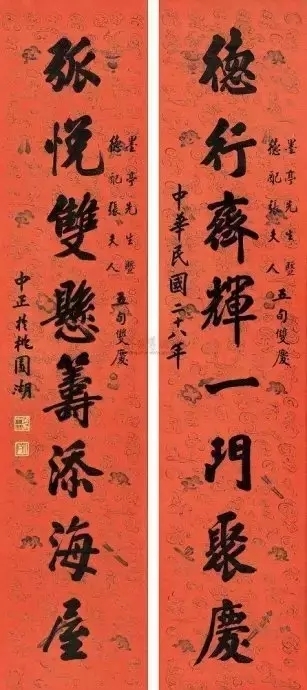 德行齊輝一門聚慶
墨亭先生暨
德配張夫人
五旬雙慶
中華民國二十八年
弧悅雙懸籌添海屋
墨亭先生暨
德配張夫人
五旬雙慶
中正於桃園湖